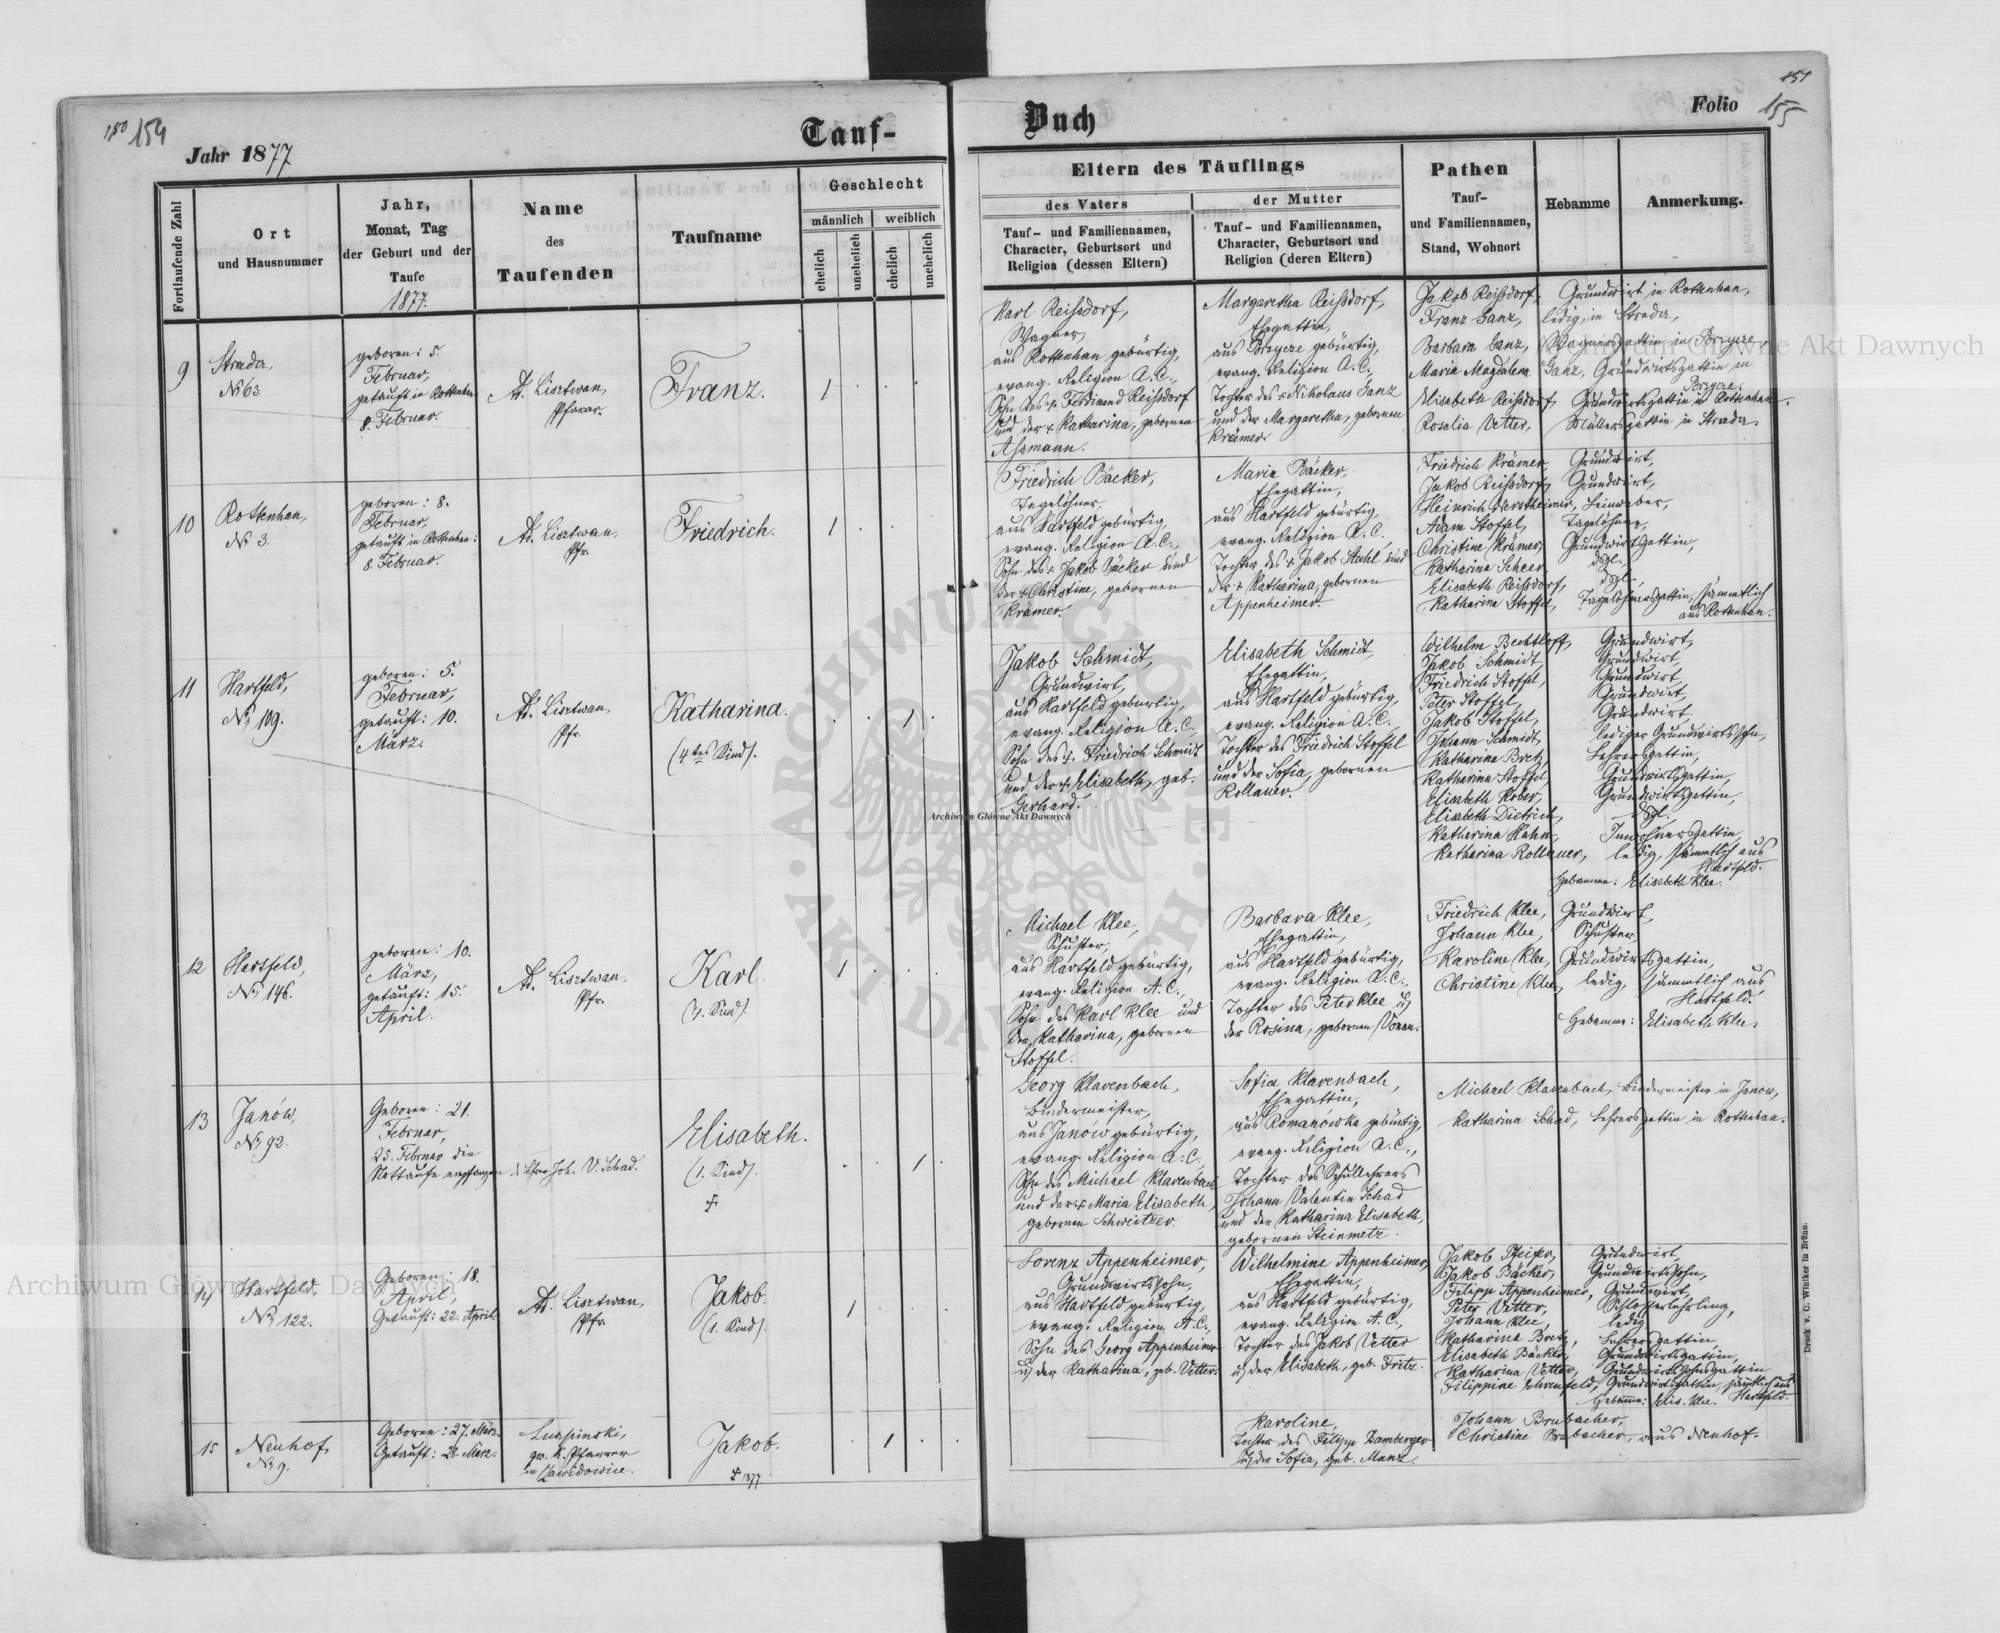 150 154
Jahr 1877
Tauf-
Buch
151
Folio 155
Fortlaufende Zahl
Ort
und Hausnummer
Jahr,
Monat, Tag
der Geburt und der
Taufe
1877.
Name
des
Taufenden
Taufname
Geschlecht
männlich
weiblich
ehelich
unehelich
ehelich
unehelich
Eltern des Täuflings
des Vaters
Tauf- und Familiennamen,
Character, Geburtsort und
Religion (dessen Eltern)
der Mutter
Tauf- und Familiennamen,
Character, Geburtsort und
Religion (deren Eltern)
Pathen
Tauf-
und Familiennamen,
Stand, Wohnort
Hebamme
Anmerkung.
9
Strada,
No 63
geboren: 5.
Februar,
getauft in Rottenhan
8. Februar.
Ad. Lisztwan,
Pfarrer.
Franz.
1
Karl Reißdorf,
Wagner,
aus Rottenhan gebürtig,
evang. Religion A.C.,
Sohn des + Ferdinand Reißdorf
und der + Katharina, gebornen
Aßmann.
Margaretha Reißdorf,
Ehegattin,
aus Brzycze gebürtig,
evang. Religion A.C.,
Tochter des + Nikolaus Ganz
und der Margaretha, gebornen
Krämer.
Jakob Reißdorf, Grundwirt in Rottenhan,
Franz Ganz, ledig, in Strada,
Barbara Ganz, Wagnersgattin in Brzycze,
Maria Magdalena Ganz, Grundwirtsgattin in
Brzycze.
Elisabeth Reißdorf, Grundwirtsgattin in Rottenhan.
Rosalia Vetter, Müllersgattin in Strada.
10
Rottenhan,
No 3.
geboren: 8.
Februar,
getauft in Rottenhan:
8. Februar.
Ad. Lisztwan,
Pfr.
Friedrich.
1
Friedrich Bäcker,
Tagelöhner,
aus Hartfeld gebürtig,
evang. Religion A.C.,
Sohn des + Jakob Bäcker und
der + Christine, gebornen
Krämer.
Maria Bäcker,
Ehegattin,
aus Hartfeld gebürtig,
evang. Religion A.C.,
Tochter des + Jakob Stahl und
der + Katharina, gebornen
Appenheimer.
Friedrich Krämer, Grundwirt,
Jakob Reißdorf, Grundwirt,
Heinrich Leineweber,
Adam Stoffel, Tagelöhner,
Christine Krämer, Grundwirtsgattin,
Katharina Scheer, dsgl.,
Elisabeth Reißdorf, dsgl.
Katharina Stoffel, Tagelöhnersgattin, sämmtlich
aus Rottenhan.
11
Hartfeld,
No 109.
geboren: 5.
Februar,
getauft: 10.
März.
Ad. Lisztwan,
Pfr.
Katharina.
(4tes Kind).
1
Jakob Schmidt,
Grundwirt,
aus Hartfeld gebürtig,
evang. Religion A.C.,
Sohn des +. Friedrich Schmidt
und der +. Elisabeth, geb.
Gerhard.
Elisabeth Schmidt,
Ehegattin,
aus Hartfeld gebürtig,
evang. Religion A.C.,
Tochter des Friedrich Stoffel
und der Sofia, gebornen
Rollauer.
Wilhelm Bechtloff, Grundwirt,
Jakob Schmidt, Grundwirt,
Friedrich Stoffel, Grundwirt,
Peter Stoffel, Grundwirt,
Jakob Stoffel, Grundwirt,
Johann Schmidt, lediger Grundwirtssohn,
Katharina Bretz, Lehrersgattin,
Katharina Stoffel, Grundwirtsgattin,
Elisabeth Kober, Grundwirtsgattin,
Elisabeth Dietrich, dsgl.
Katharina Hahn, Inwohnersgattin,
Katharina Rollauer, ledig, sämmtlich aus
Hartfeld.
Hebamme: Elisabeth Klee.
12
Hartfeld,
No 146.
geboren: 10.
März,
getauft: 15.
April.
Ad. Lisztwan,
Pfr.
Karl.
1
Michael Klee,
Schuster,
aus Hartfeld gebürtig,
evang. Religion A.C.,
Sohn des Karl Klee und
der Katharina, gebornen
Stoffel.
Barbara Klee,
Ehegattin,
aus Hartfeld gebürtig,
evang. Religion A.C.,
Tochter des Peter Klee u)
der Rosina, gebornen
Friedrich Klee, Grundwirt,
Johann Klee, Schuster,
Karoline Klee, Grundwirtsgattin,
Christine Klee, ledig, sämmtlich aus
Hartfeld.
Hebamme: Elisabeth Klee.
13
Janów,
No 92.
Geboren: 21.
Februar,
25. Februar die
Nottaufe empfangen d. Lehrer Joh. V. Schad.
Elisabeth.
(1. Kind).
+
1
Georg Klarenbach,
Bindermeister,
aus Janów gebürtig,
evang. Religion A.C.,
Sohn des Michael Klarenbach
und der + Maria Elisabeth,
gebornen Schweitzer.
Sofia Klarenbach,
Ehegattin,
aus Romanówka gebürtig,
evang. Religion A.C.,
Tochter des Schullehrers
Johann Valentin Schad
und der Katharina Elisabeth,
gebornen Steinmetz.
Michael Klarenbach, Bindermeister in Janow,
Katharina Schad, Lehrersgattin in Rottenhan.
14
Hartfeld,
No 122.
Geboren: 18.
April,
Getauft: 22. April.
Ad. Lisztwan,
Pfr.
Jakob.
(1. Kind).
1
Lorenz Appenheimer,
Grundwirtssohn,
aus Hartfeld gebürtig,
evang. Religion A.C.,
Sohn des Georg Appenheimer
u) der Katharina, geb. Vetter.
Wilhelmine Appenheimer,
Ehegattin,
aus Hartfeld gebürtig,
evang. Religion A.C.,
Tochter des Jakob Vetter
u) der Elisabeth, geb. Fritz.
Jakob Grundwirt,
Jakob Bäcker, Grundwirtssohn,
Filipp Appenheimer, Grundwirt,
Peter Vetter, Schlosserlehrling,
Johann Klee, ledig
Katharina Bretz, Lehrersgattin,
Elisabeth Bäcker, Grundwirtsgattin,
Katharina Vetter, Grundwirtssohnsgattin
Filippine Ehrenfeld, Grundwirtsgattin, sämmtlich aus
Hebamme: Elis. Klee. Hartfeld.
15
Neuhof,
No 9.
Geboren: 27. März.
Getauft: 28. März.
gr. K. Pfarrer
in Zawidowice.
Jakob.
+ 1877
1
Karoline,
Tochter des Filipp Bamberger
u) der Sofia, geb. Manz.
Johann Brubacher,
Christine Brubacher, aus Neuhof.
Druck v. C. Winiker in Brünn.
Archiwum Główne Akt Dawnych
Archiwum Główne Akt Dawnych
Archiwum Główne Akt Dawnych
ARCHIWUM GŁÓWNE AKT DAWNYCH